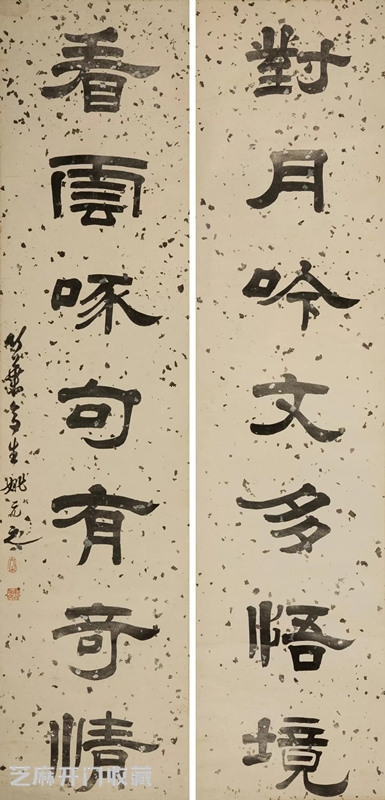 對月吟文多悟境
看雲啄句有奇情
竹葉亭生姚元之
芝麻开门收藏